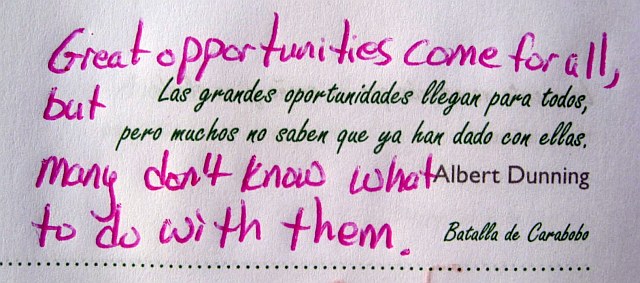 Great opportunities come for all,
but
Las grandes oportunidades llegan para todos,
pero muchos no saben que ya han dado con ellas.
many don't know what
Albert Dunning
to do with them.
Batalla de Carabobo